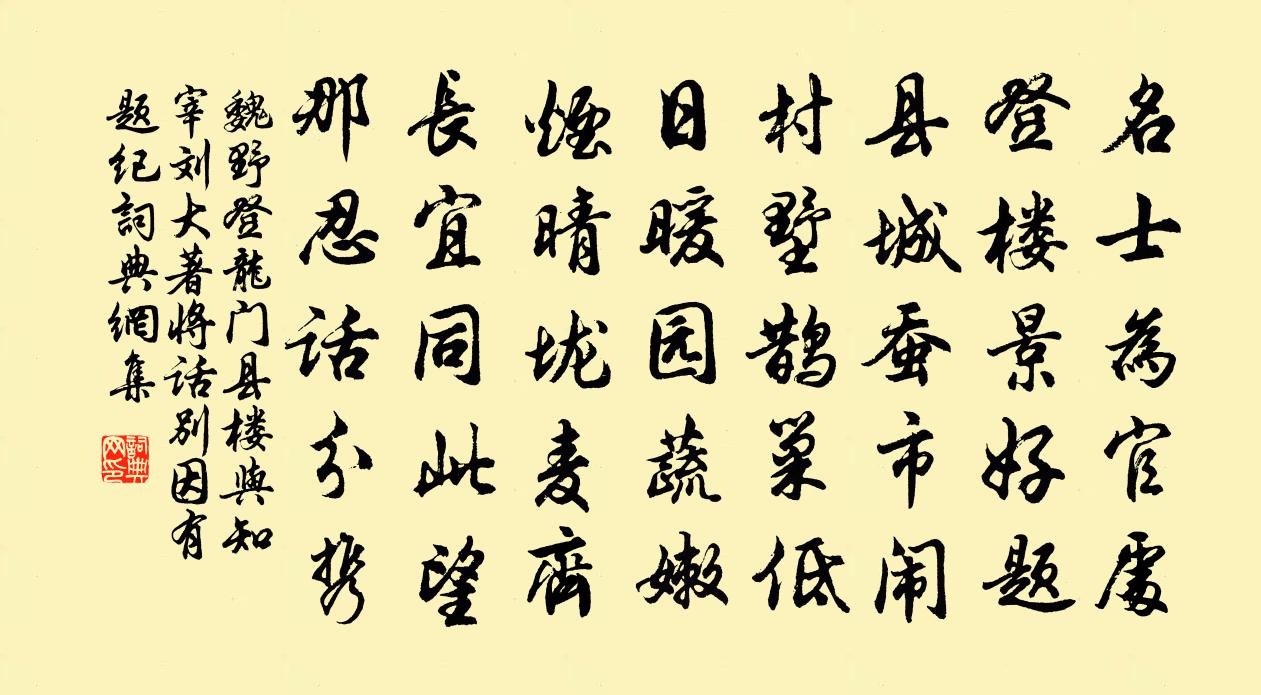 名士為官處
登楼景好题
县城蚕市闹
村墅鹊巢低
日暖园蔬嫩
煙晴垅麦齊
長宜同此望
那忍话分携
魏野登龍门县楼與知
宰刘大著将话别因有
题纪詞典網集
詞典网印